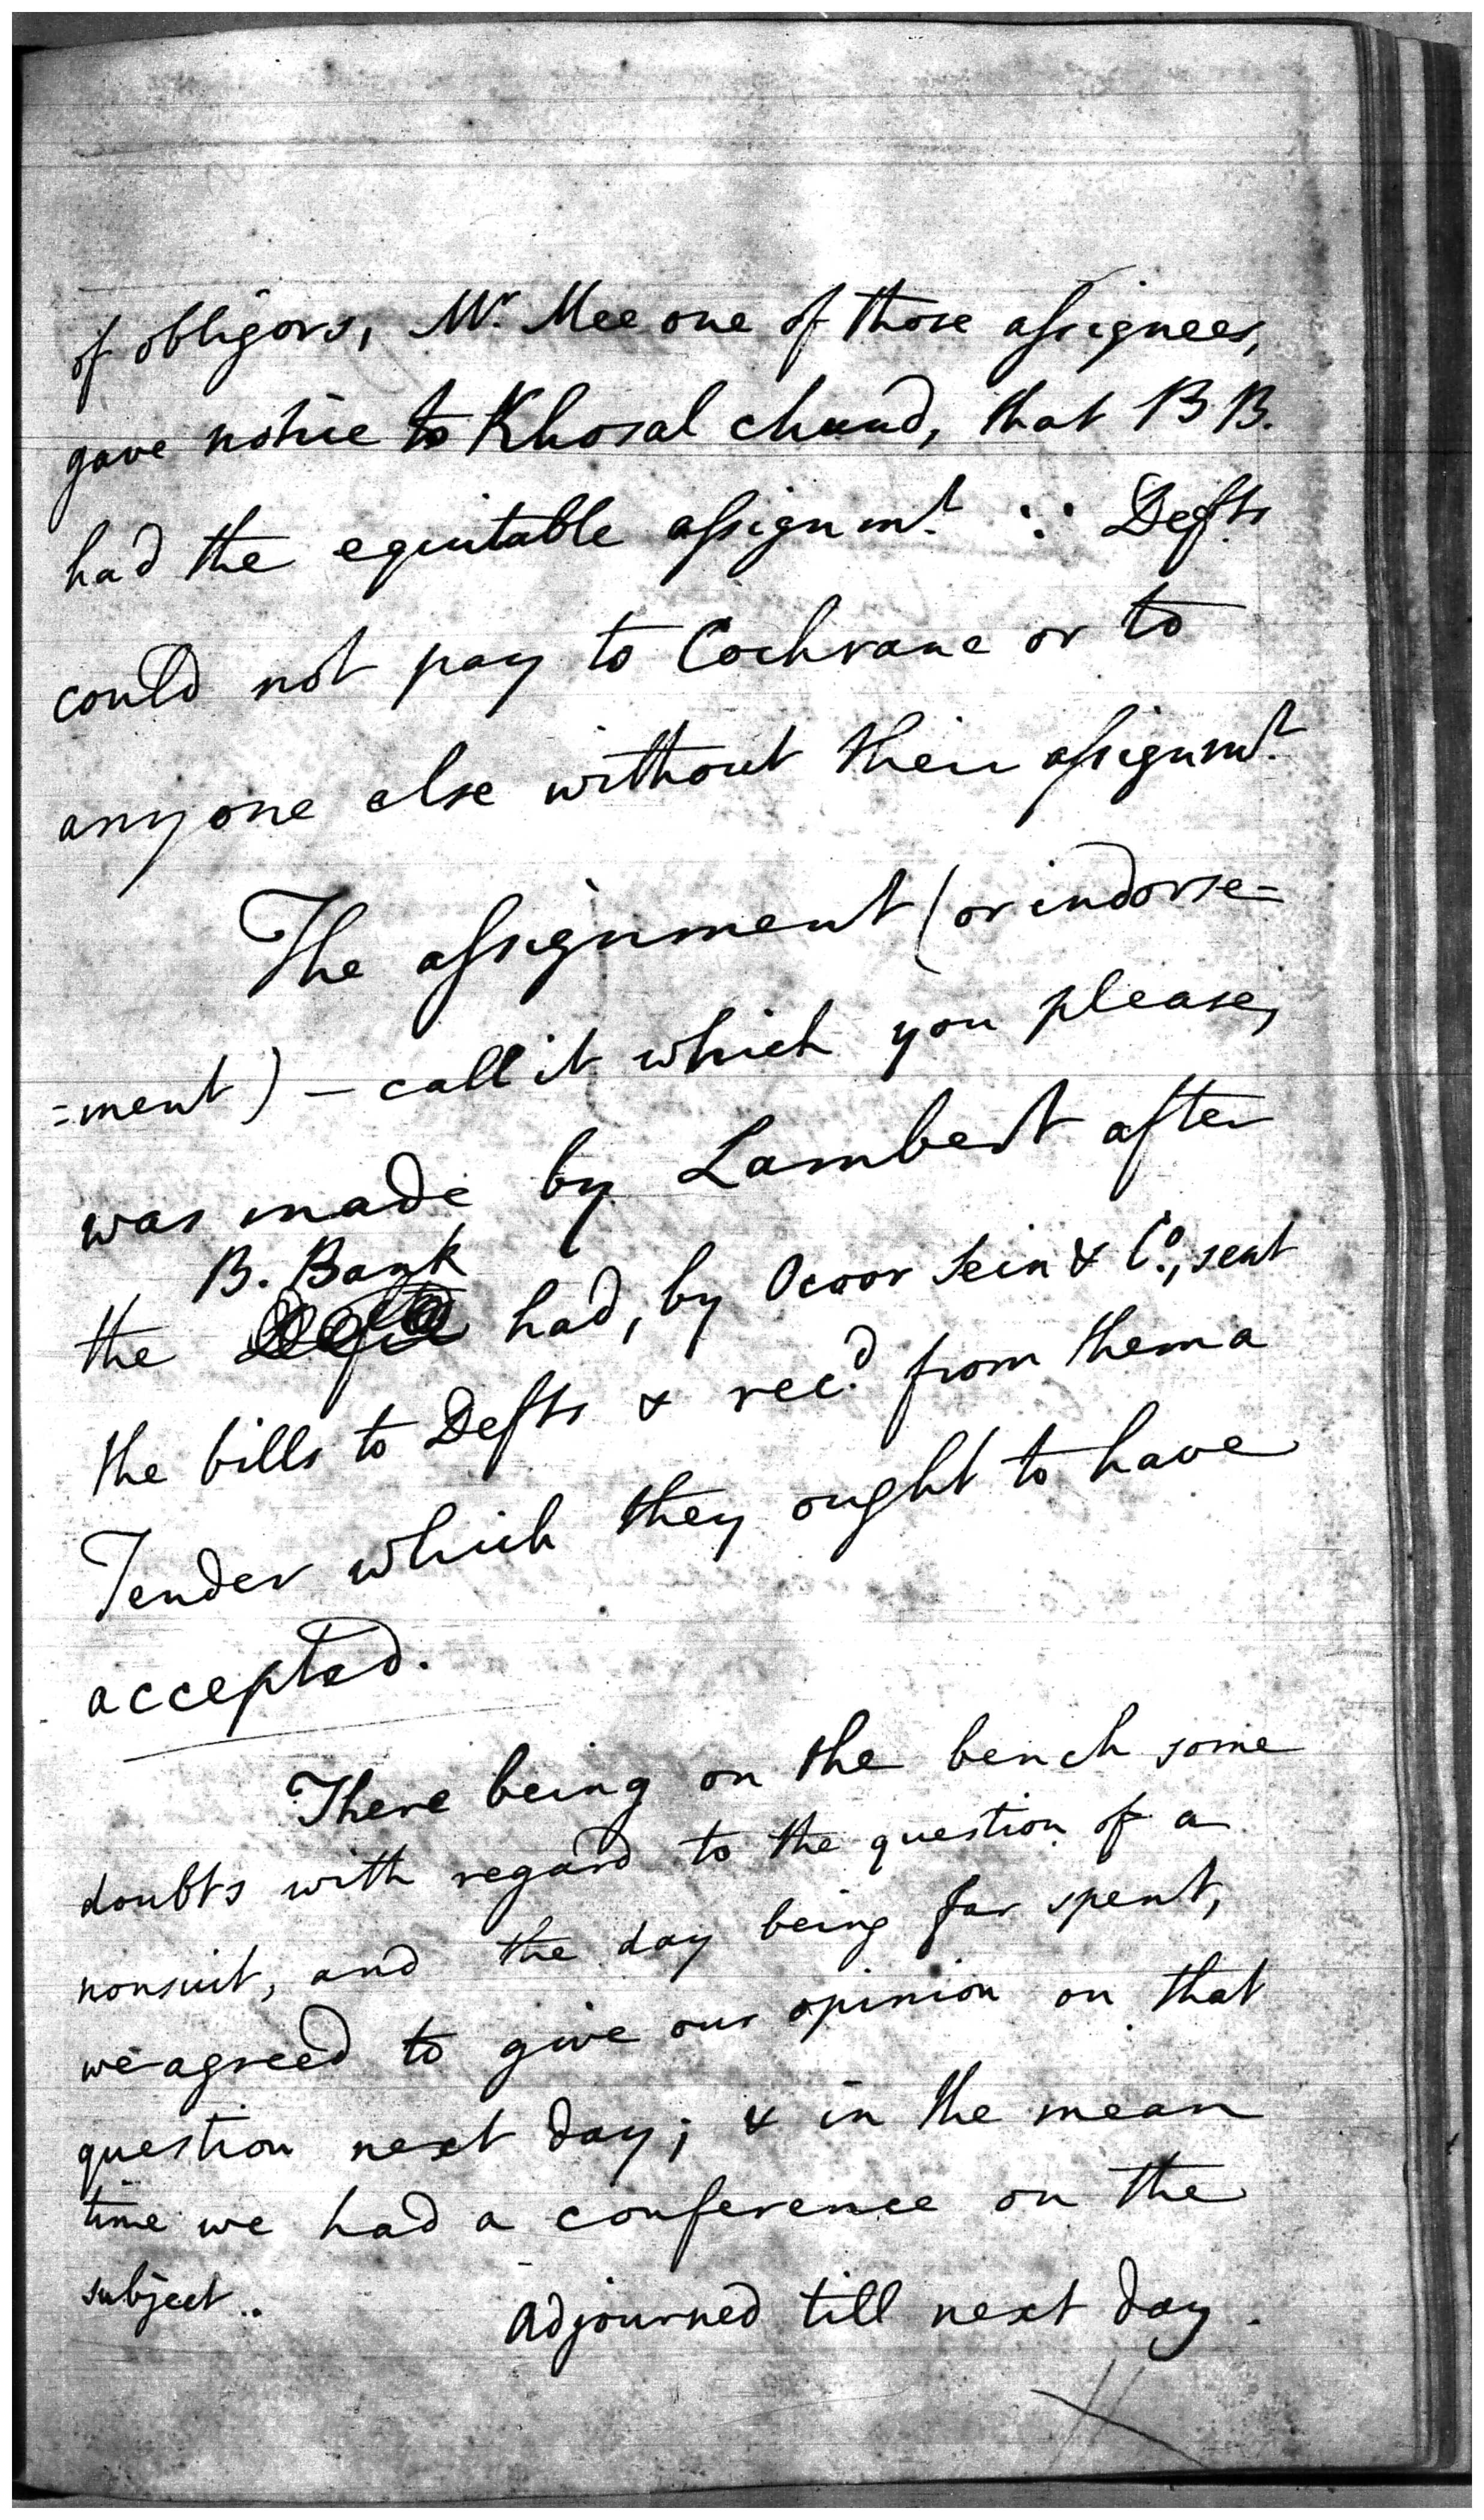 of obligors, Mr. Mee one of those assignees,
gave notice to Khosal chund, that B B.
had the equitable assignmt. ∵ Defts
could not pay to Cochrane or to
anyone else without their assignmt.
The assignment (or indorse=
=ment) – call it which you please,
was made by Lambert after
B. Bank
the had, by Ocoor Sein & Co., sent
the bills to Defts & recd. from them a
Tender which they ought to have
accepted.
There being on the bench some
doubts with regard to the question of a
nonsuit, and the day being far spent,
we agreed to give our opinion on that
question next day; & in the mean
time we had a conference on the
subject..
Adjourned till next day.